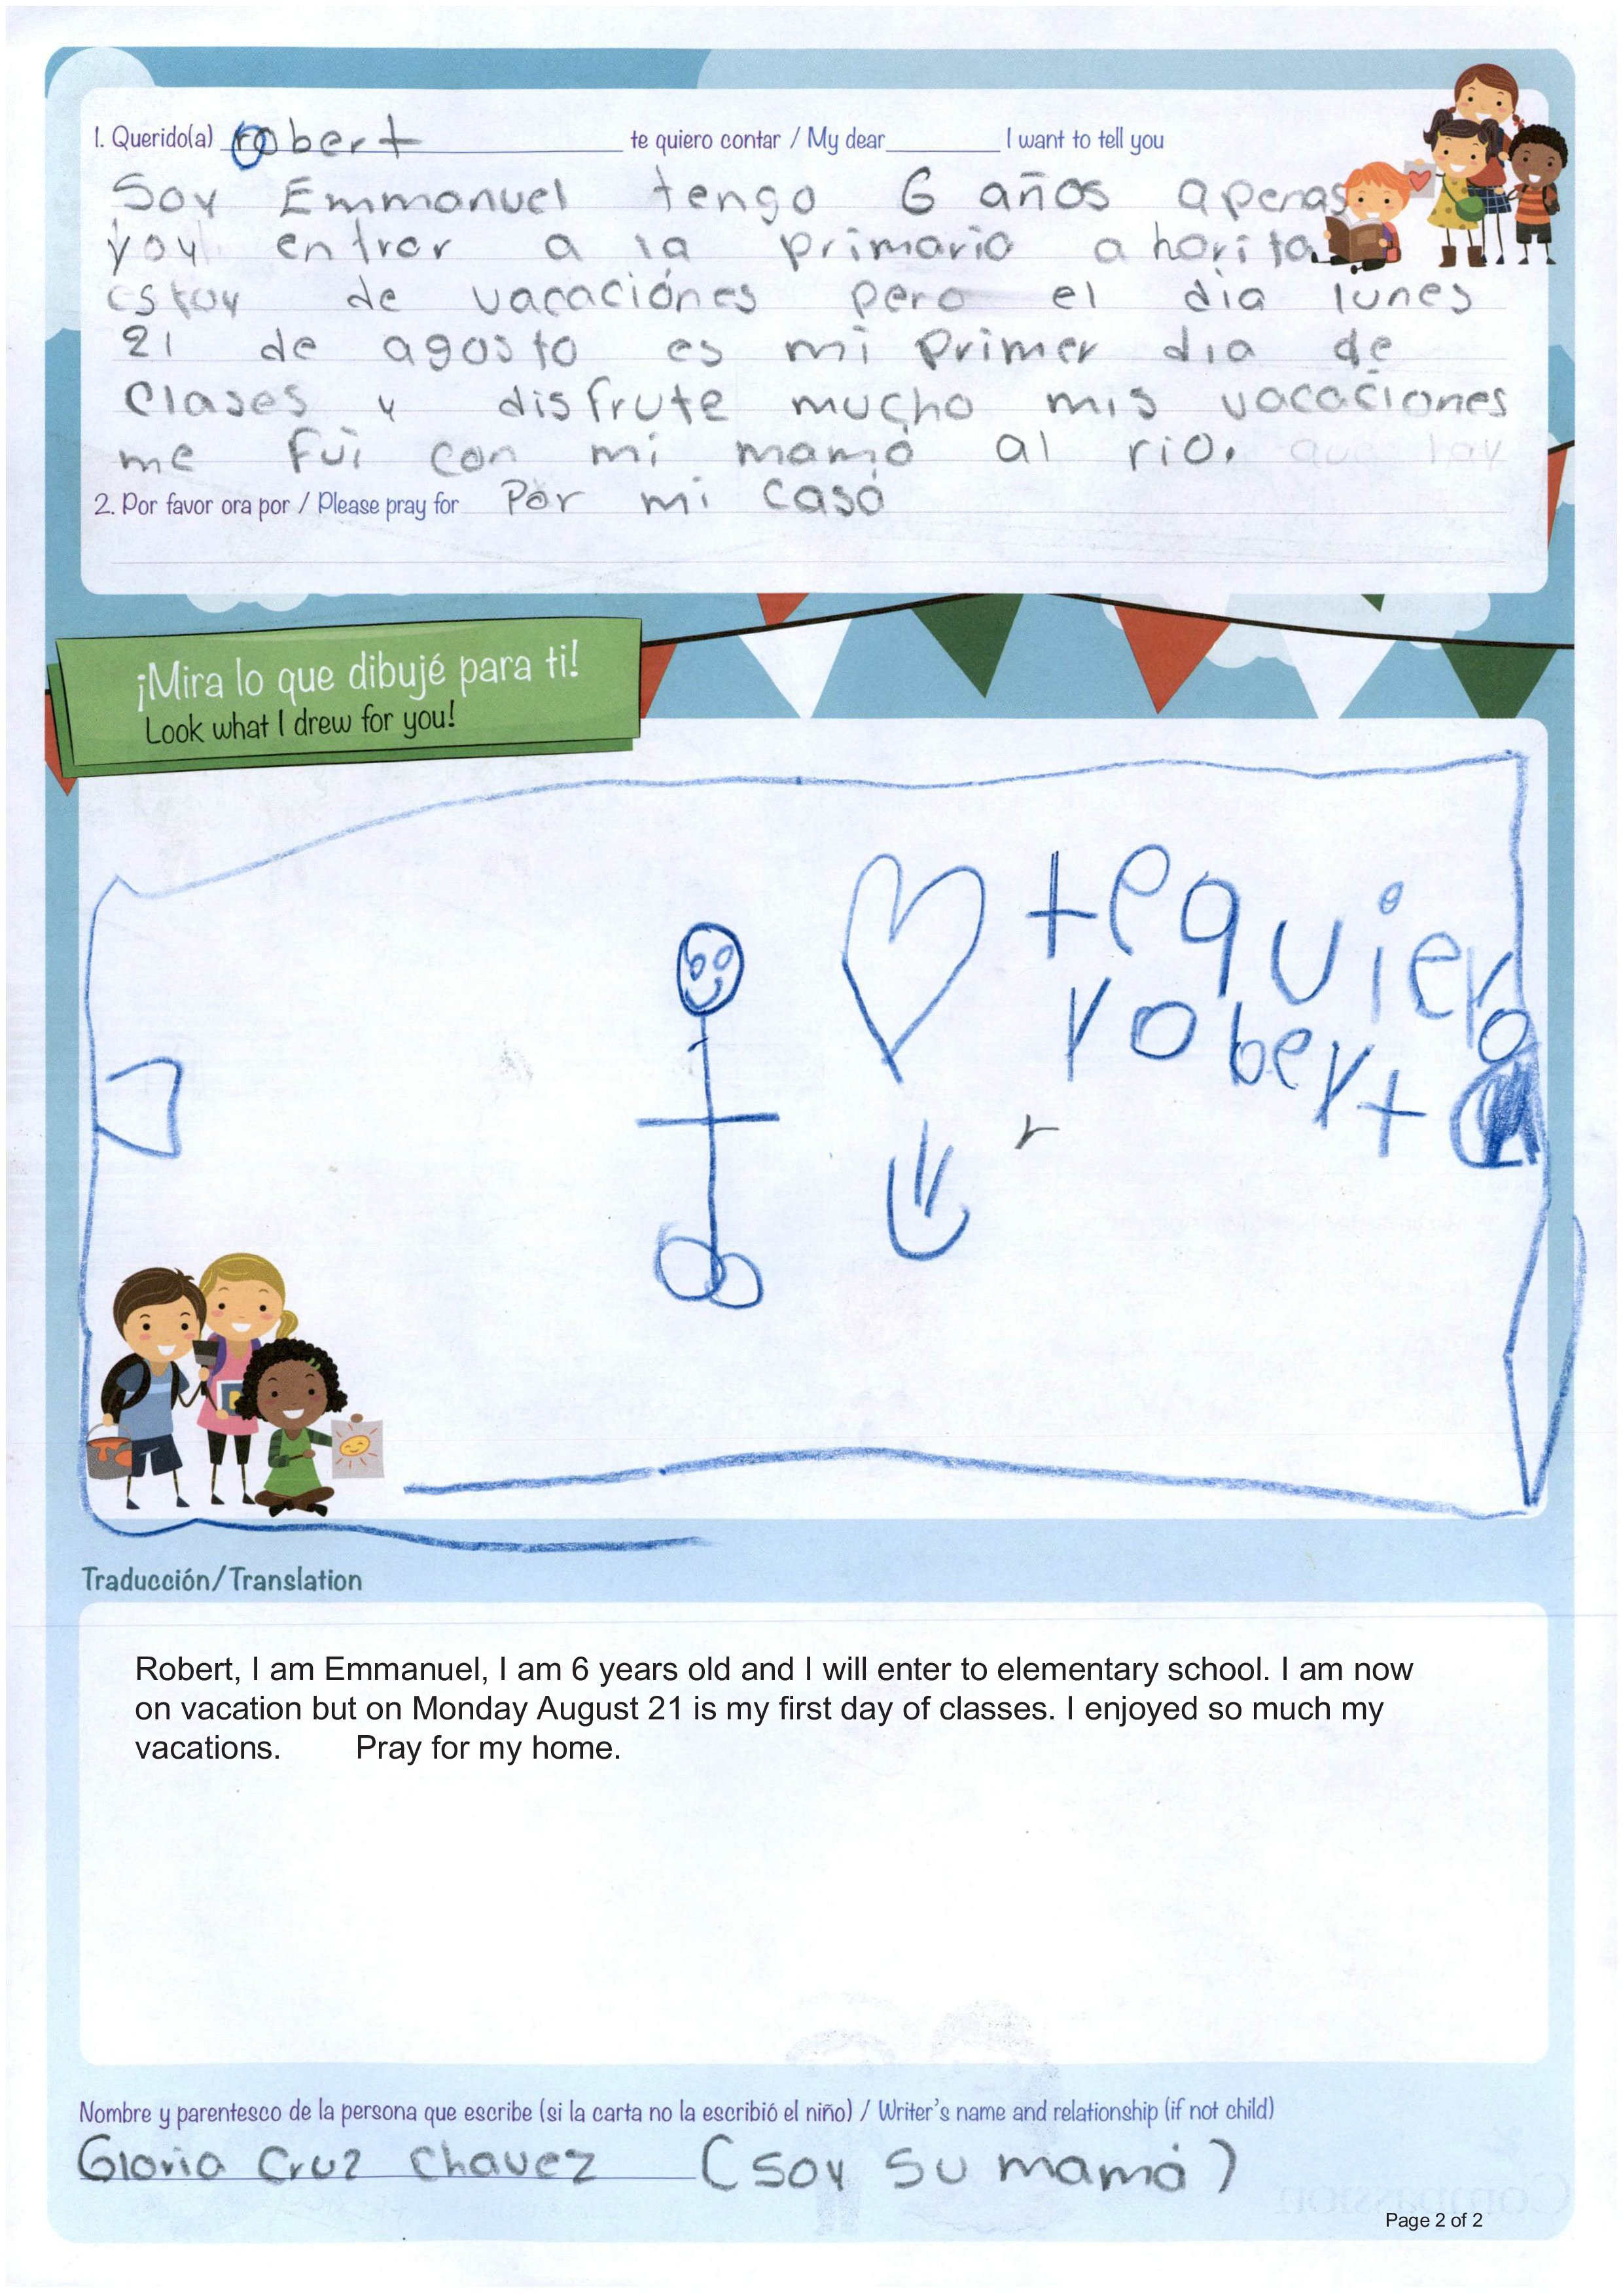 1. Querido(a) robert te quiero contar / My dear________ I want to tell you
Soy Emmanuel tengo 6 años apenas
voy entrar a la primaria ahorita
estoy de vacaciónes pero el dia lunes
21 de agosto es mi primer dia de
clases y disfrute mucho mis vacaciones
me fui con mi mamá al rio.
2. Por favor ora por / Please pray for Por mi casa
¡Mira lo que dibujé para ti!
Look what I drew for you!
tequiero
robert
r
Traducción/Translation
Robert, I am Emmanuel, I am 6 years old and I will enter to elementary school. I am now
on vacation but on Monday August 21 is my first day of classes. I enjoyed so much my
vacations. Pray for my home.
Nombre y parentesco de la persona que escribe (si la carta no la escribió el niño) / Writer's name and relationship (if not child)
Gloria Cruz Chavez (soy su mamá)
Page 2 of 2